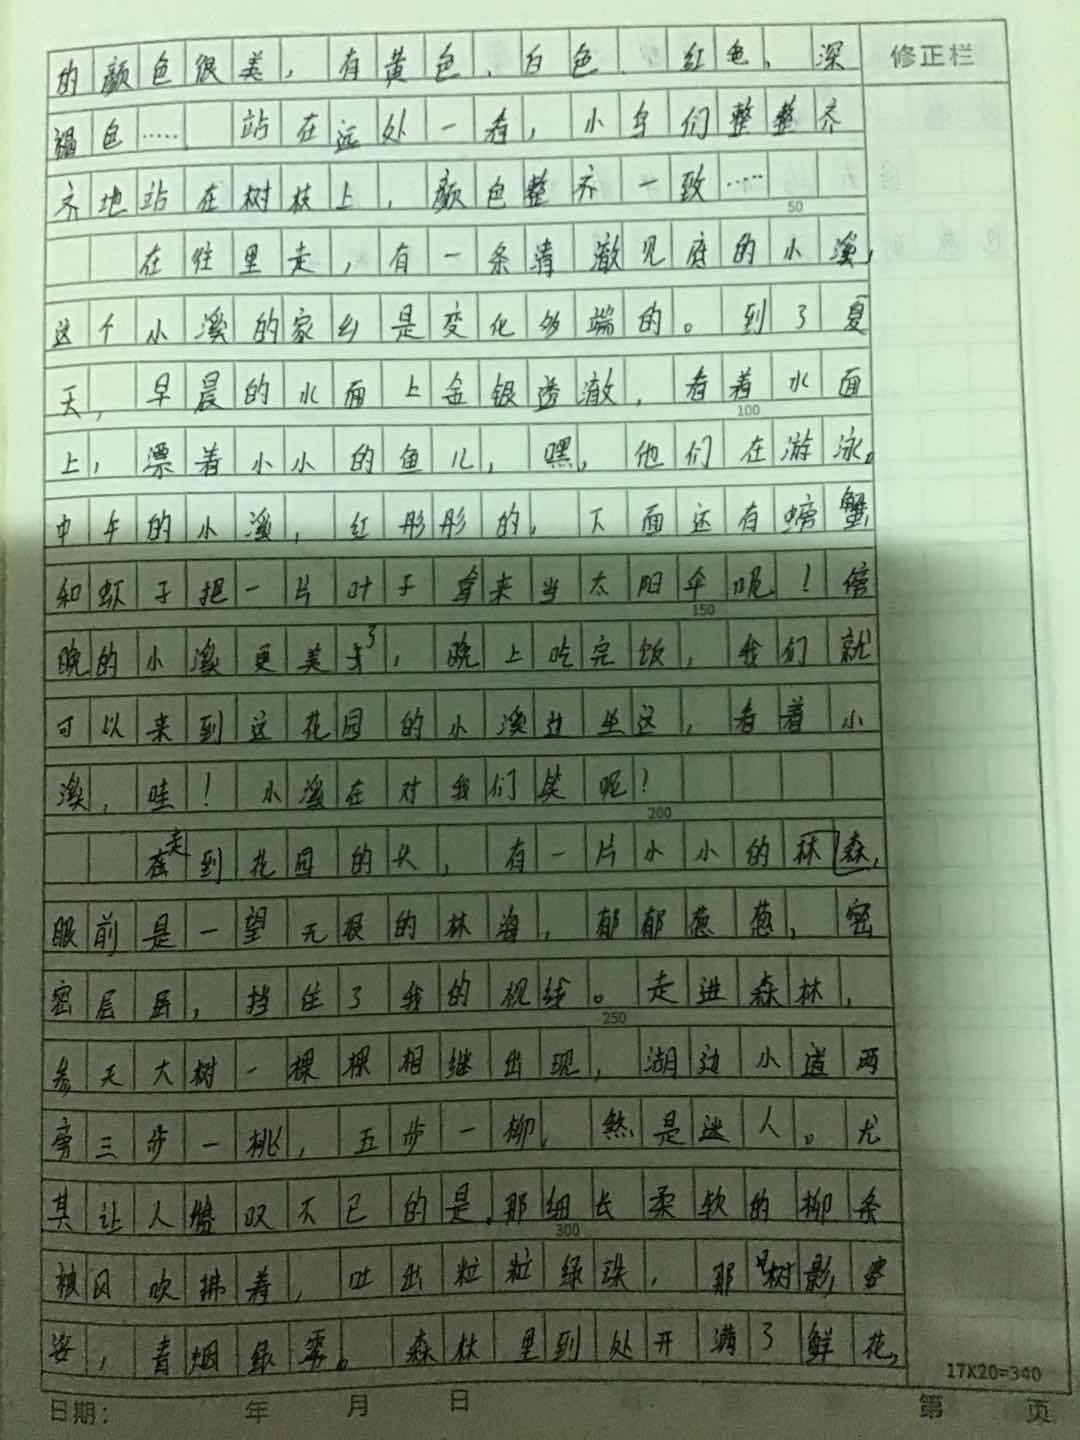 的颜色很美，有黄色、白色、红色、深
褐色……站在远处一看，小鸟们整整齐
齐地站在树枝上，颜色整齐一致……
50
在往里走，有一条清澈见底的小溪，
这个小溪的家乡是变化多端的。到了夏
天，早晨的水面上金银透澈，看着水面
100
上，漂着小小的鱼儿，嘿，他们在游泳。
中午的小溪，红彤彤的，下面还有螃蟹
和虾子把一片叶子拿来当太阳伞呢！傍
150
晚的小溪更美了，晚上吃完饭，我们就
可以来到这花园的小溪边坐这，看着小
溪，哇！小溪在对我们笑呢！
200
走到花园的头，有一片小小的林森，
眼前是一望无垠的林海，郁郁葱葱，密
密层层，挡住了我的视线。走进森林，
250
参天大树一棵棵相继出现，湖边小道两
旁三步一桃，五步一柳，煞是迷人。尤
其让人惊叹不已的是，那细长柔软的柳条
300
被风吹拂着，吐出粒粒绿珠，那树影
姿，青烟绿雾。森林里到处开满了鲜花，
修正栏
17X20=340
日期： 年 月 日 第 页